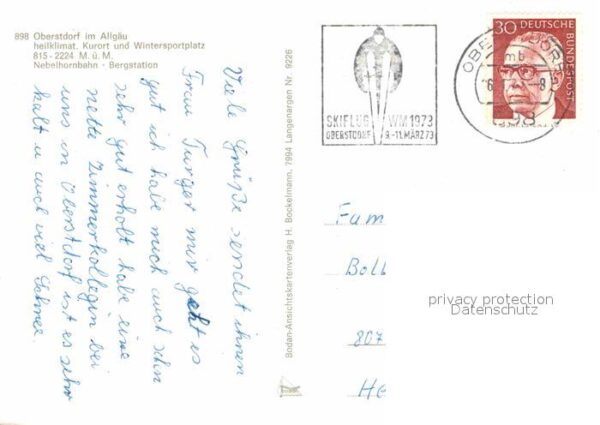 898 Oberstdorf im Allgäu
heilklimat. Kurort und Wintersportplatz
815-2224 M. ü. M.
Nebelhornbahn - Bergstation
Viele Grüße sendet ihnen
Frau Turger mir geht es
gut ich habe mich auch schn
sehr gut erholt habe eine
nette Zimmerkollegin bei
uns in Oberstdorf ist es sehr
kalt u auch viel Schnee.
Bodan-Ansichtskartenverlag H. Bockelmann, 7994 Langenargen Nr. 9226
SKIFLUG WM 1973
OBERSTDORF 9.-11. MÄRZ 73
30 DEUTSCHE BUNDESPOST
mb
898
Fam
Boll
807
He
privacy protection
Datenschutz